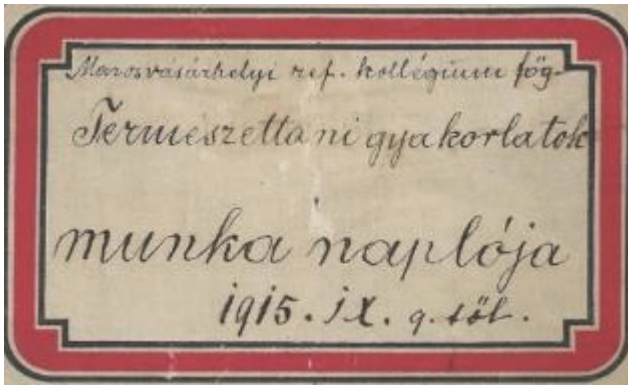 Marosvásárhelyi ref. kollégium fög.
Termeszettani gyakorlatok
munka naplója
1915. IX. 9. től.